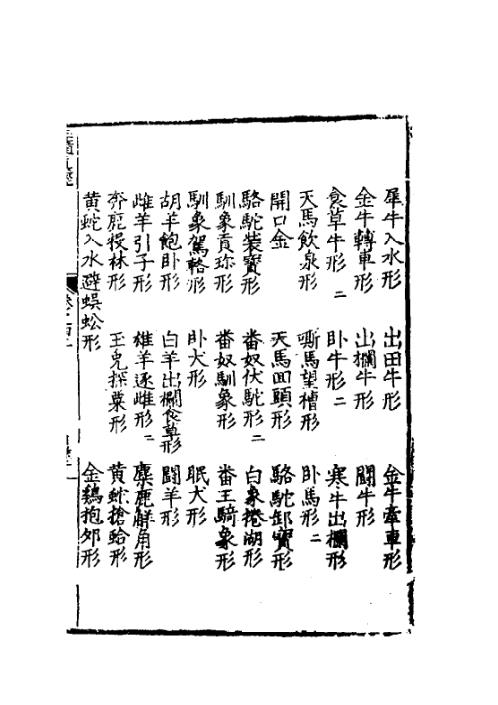 犀牛入水形　出田牛形　金牛牽車形
金牛轉車形　出欄牛形　鬭牛形
食草牛形二　卧牛形二　寒牛出欄形
天馬飲泉形　嘶馬望槽形　卧馬形二
開口金　天馬回頭形　駱駝卸寶形
駱駝裝寶形　番奴伏駝形二　白象捲湖形
馴象貢珎形　番奴馴象形　番王騎象形
馴象駕輅形　卧犬形　眠犬形
胡羊飽卧形　白羊出欄食草形　鬭羊形
雌羊引子形　雄羊逐雌形二　麋鹿觧角形
奔鹿投林形　玉兎採粟形　黄蛇搶蛤形
黄蛇入水避蜈蚣形　金鷄抱夘形